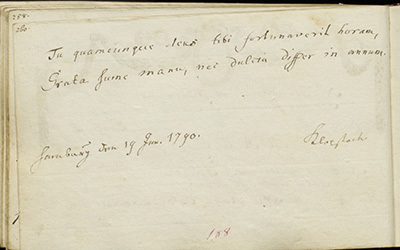 258.
260.
Tu quamcunque Deus tibi fortunaverit horam,
Grata sume manu, nec dulcia differ in annum.
Hamburg den 19 Jun. 1790.
Klopstock
188